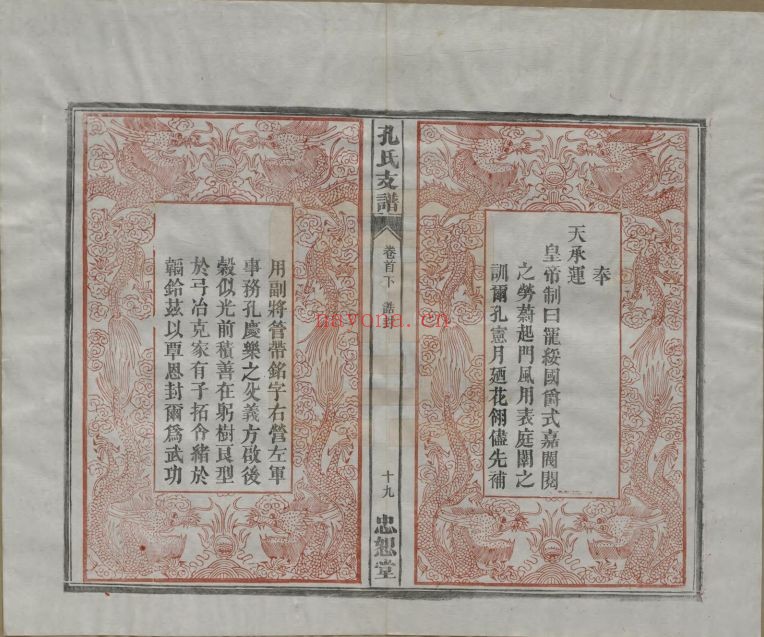 奉
天承運
皇帝制曰寵綏國爵式嘉閥閱
之勞蔚起門風用表庭闈之
訓爾孔憲月廼花翎儘先補
孔氏支譜
卷首下
誥封
十九
忠恕堂
用副將管帶銘字右營左軍
事務孔慶樂之父義方啟後
穀似光前積善在躬樹良型
於弓冶克家有子拓令緒於
韜鈐茲以覃恩封爾為武功
navona.cn